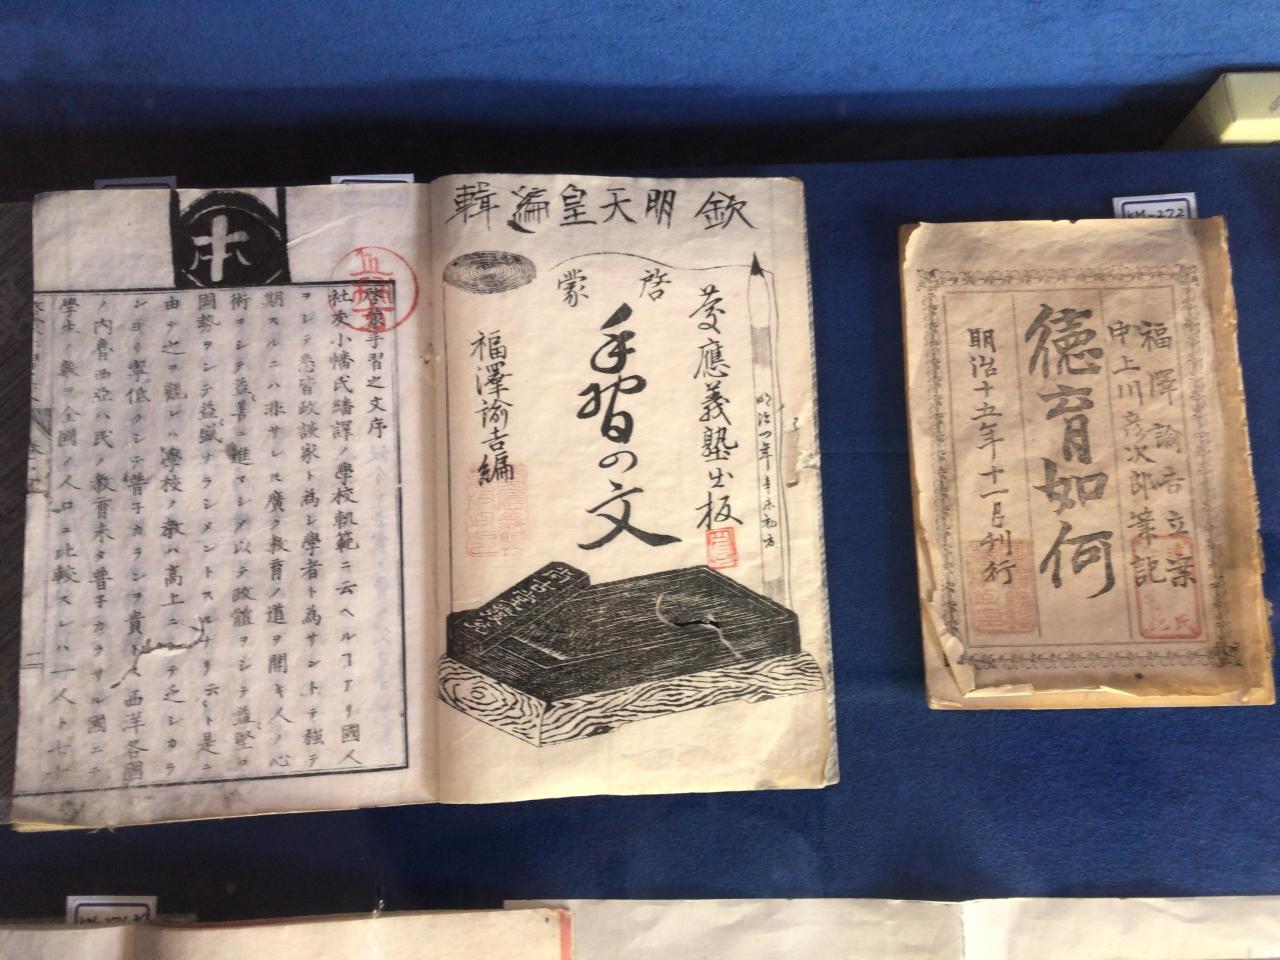 欽明天皇編輯
慶應義塾出板
啓蒙
手習の文
福澤諭吉編
啓蒙手習之文序
社友小幡氏繙譯ノ學校軌範ニ云ヘルヿアリ國人
ヲシテ悉皆政談家ト為シ學者ト為サントテ強テ
期スルニハ非サレ𪜈廣ク教育ノ道ヲ開キ人ノ心
術ヲシテ益善ニ進マシメ以テ政體ヲシテ益堅ロ
國勢ヲシテ益盛ナラシメントスルナリ云々ト是ニ
由テ之ヲ觀レハ學校ノ教ハ高上ニシテ乏シカラ
ンヨリ寧低クシテ普子カランヲ貴トス西洋各國
ノ内魯西亞ハ民ノ教育未タ普子カラサル國ニテ
學生ノ數ヲ全國ノ人口ニ比較スレハ一人ト七十
福澤諭吉立案
中上川彦次郎筆記
徳育如何
明治十五年十一月刊行
KM-272